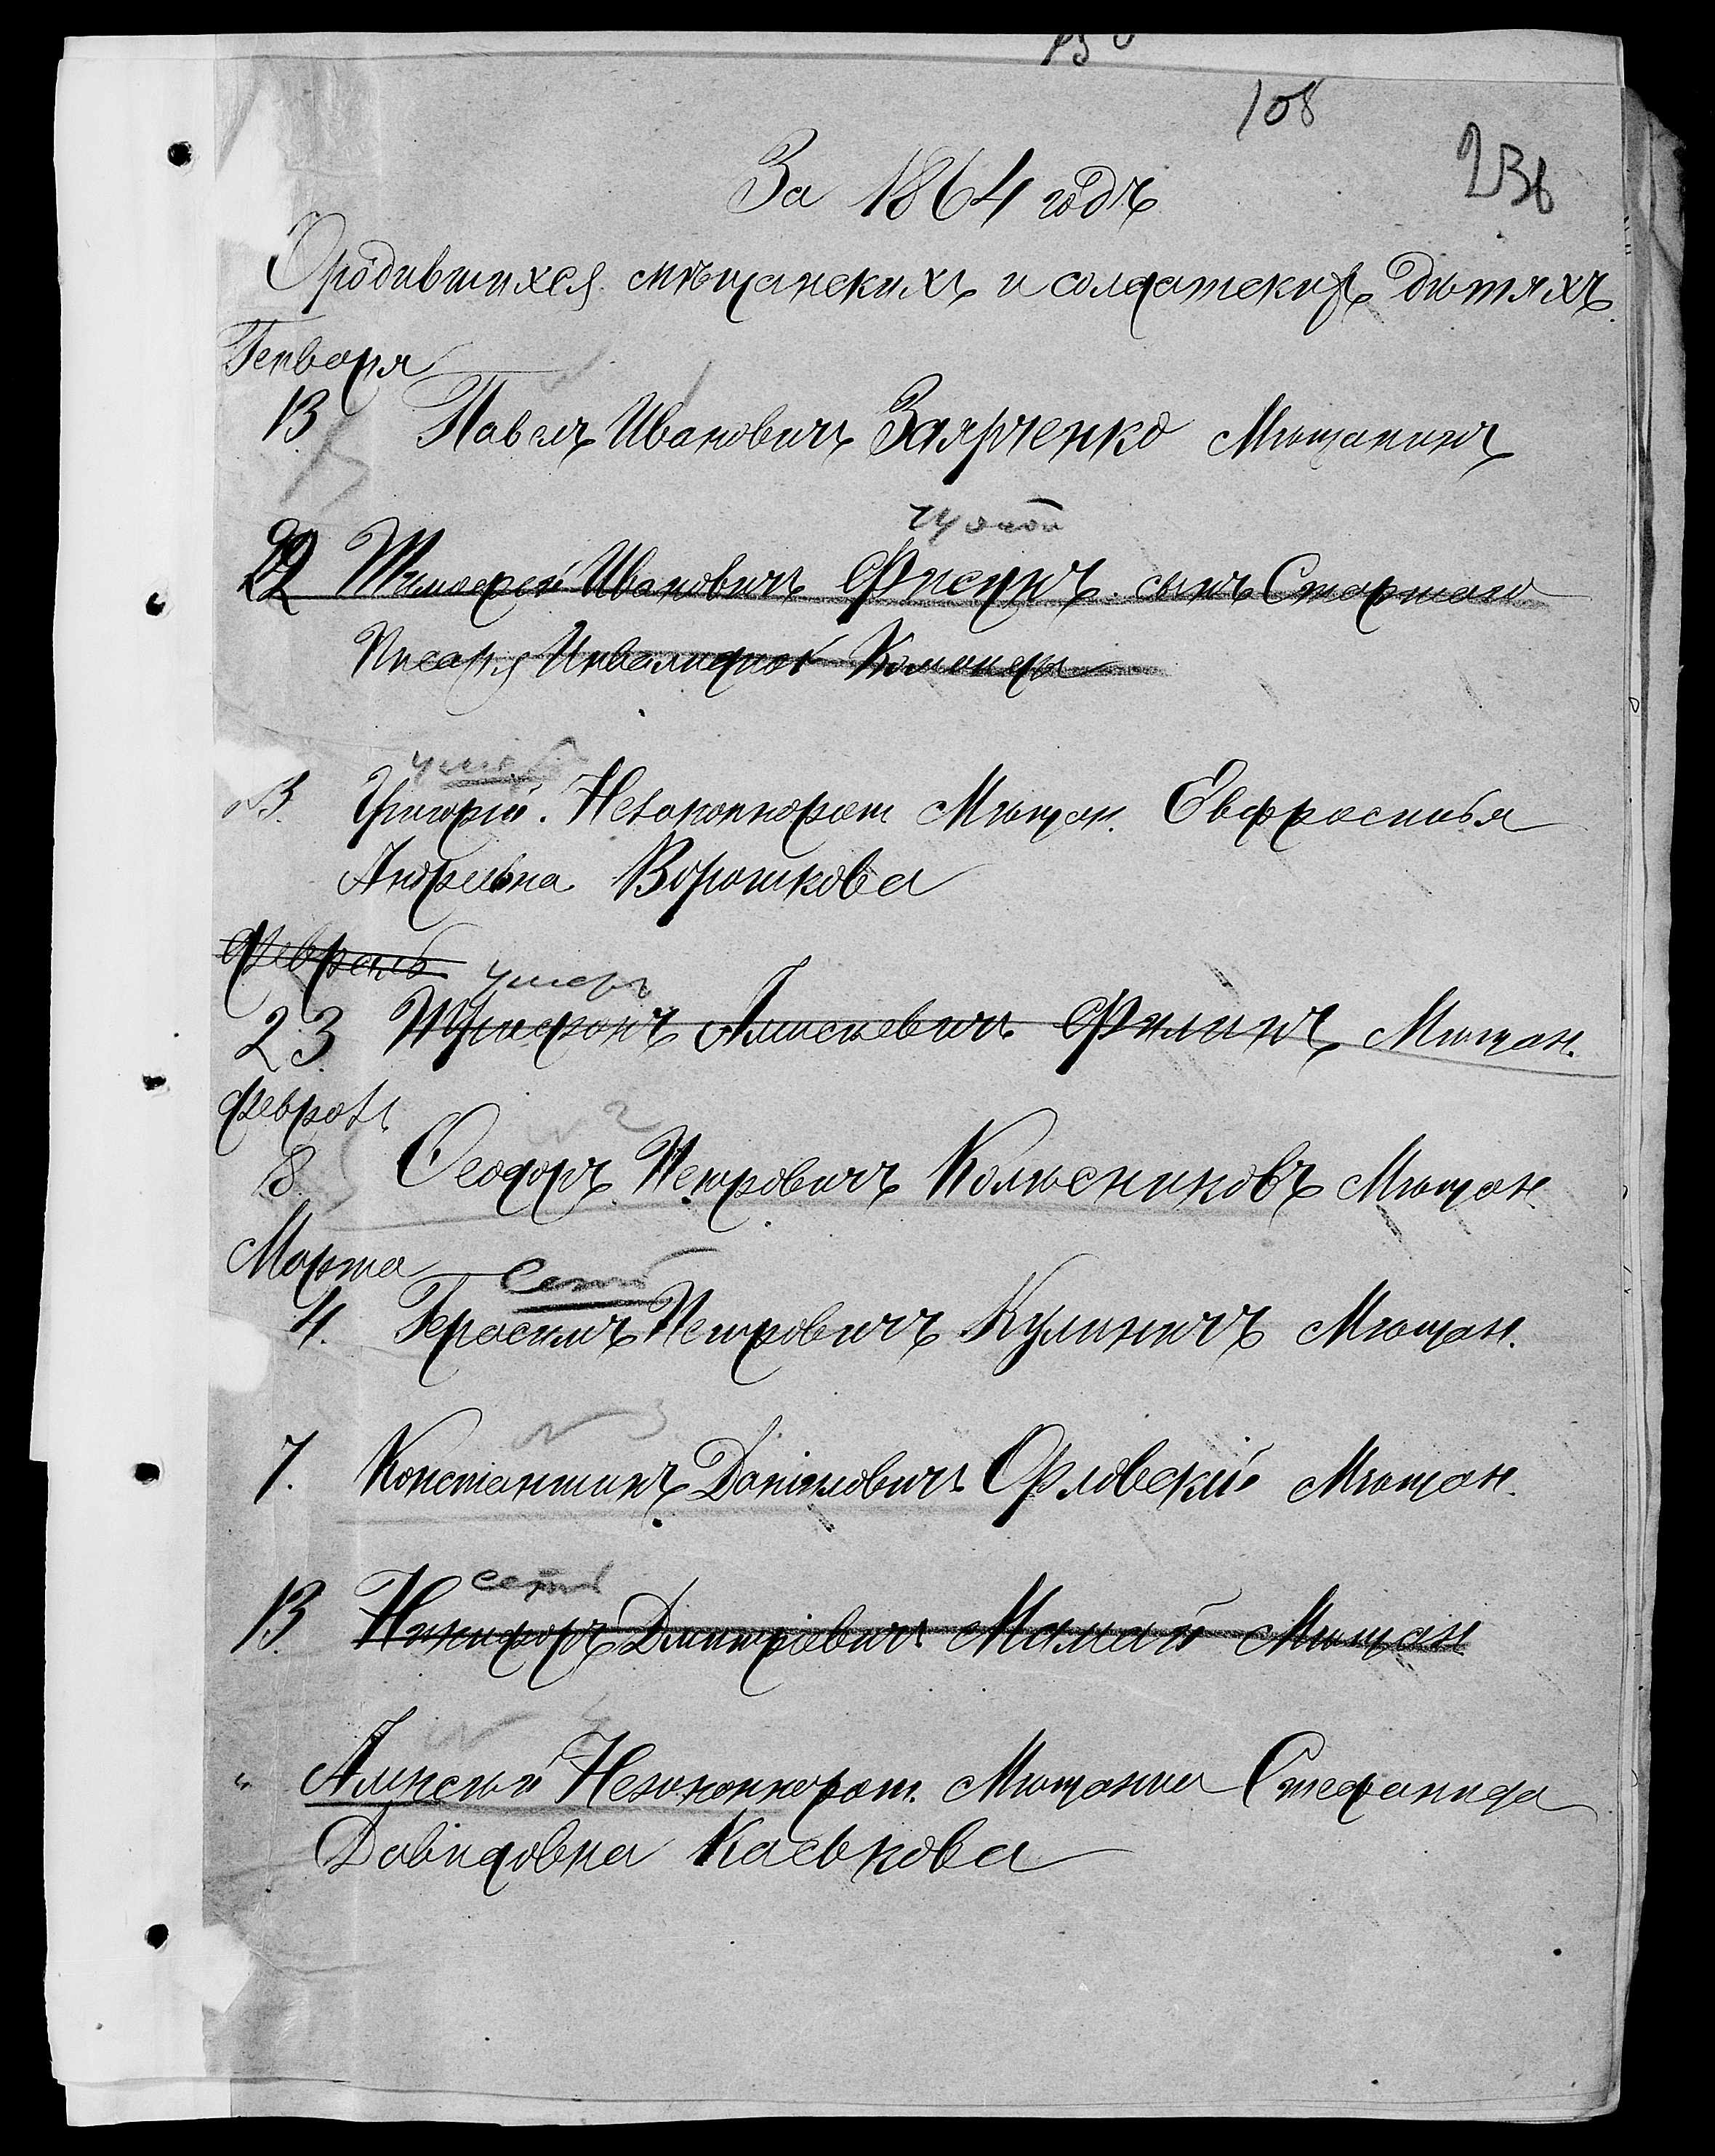 108
236
За 1864 годъ
О родившихся мѣщанскихъ и солдатских дѣтяхъ
Генваря
13 Павелъ Ивановичъ Заярченко Мѣщанинъ
22 Тимофей Ивановичъ Фисунъ сынъ Старшаго
Писаря Инвалидной Команды
умер
23. Григорій. Незаконнорож Мѣщан. Евфросинья
Андреевна Ворошкова
Февраль
умеръ
23 Трифонъ Алексѣевичъ Филинъ Мѣщан.
Феврал.
2
8. Ѳеодоръ Петровичъ Колесниковъ Мѣщан.
Марта
4. Герасимъ Петровичъ Кулиничъ Мѣщан.
3
7. Константинъ Даніиловичъ Орловскій Мѣщан.
13 Никифоръ Дмитріевичъ Мамай Мѣщан
Алексѣй Незаконнорож. Мѣщанка Стефанида
Давидовна Каськова